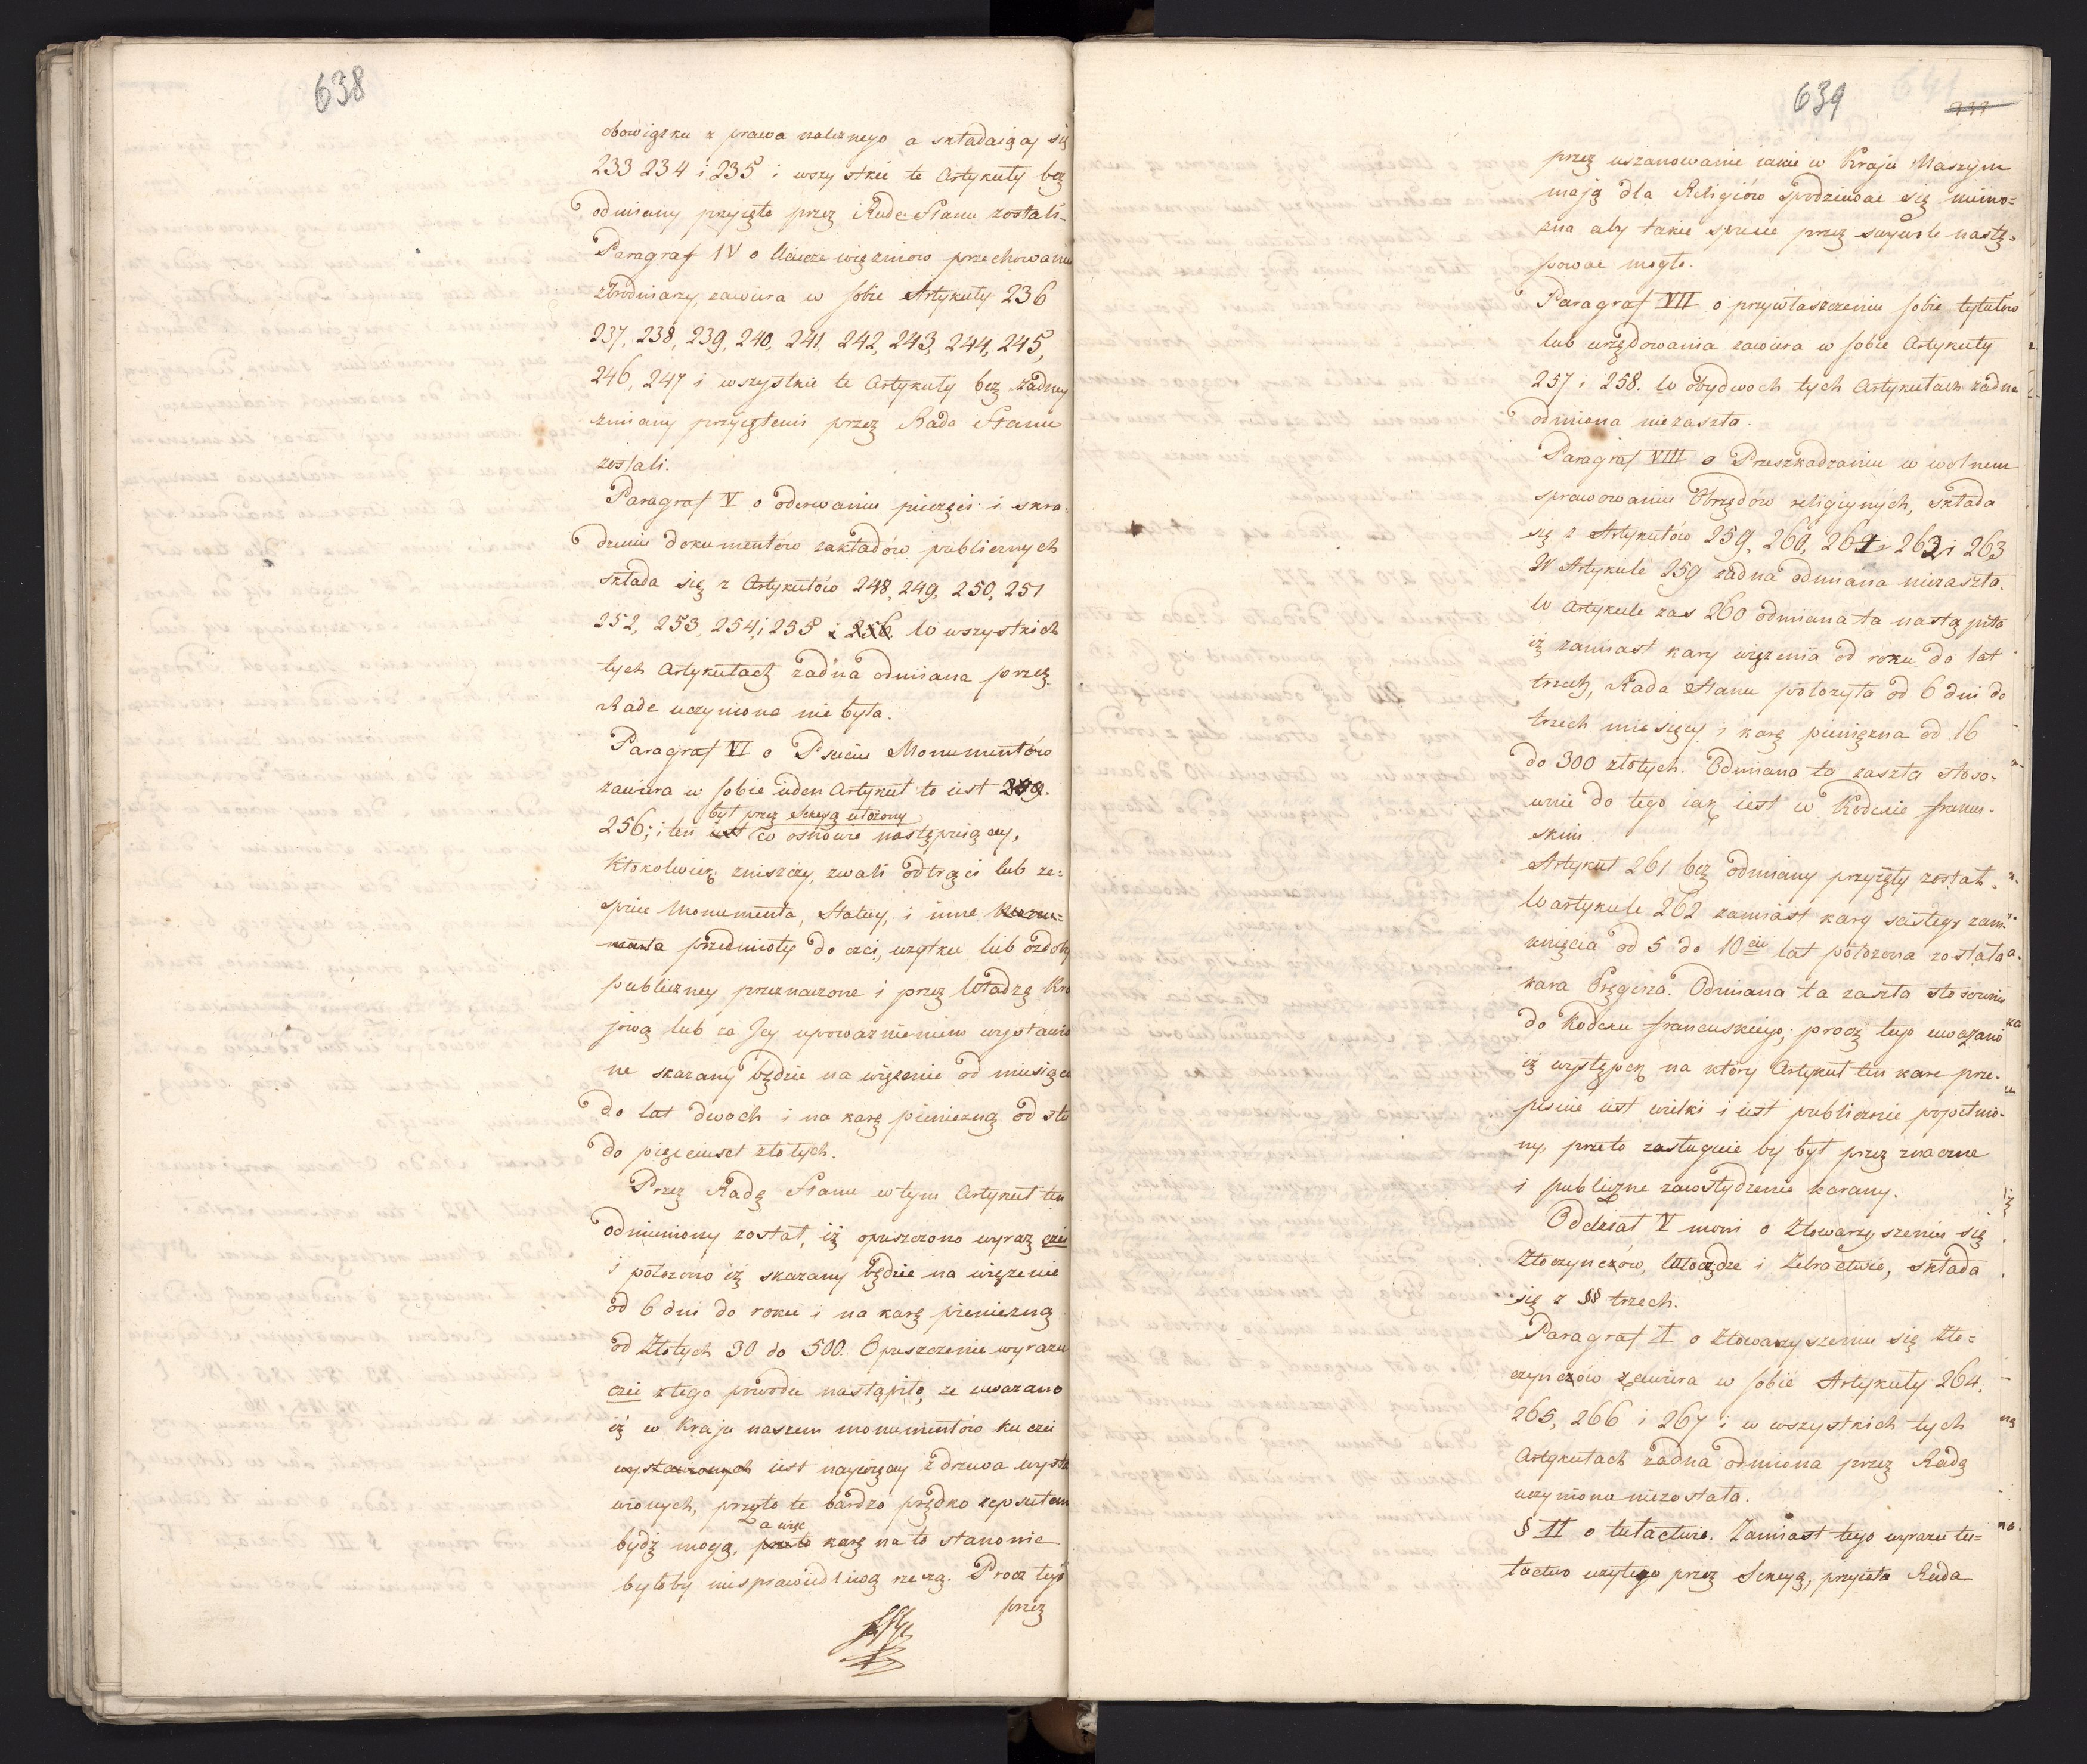 638
obowiązku z prawa należnego a składaiący się
233 234 i 235 i wszystkie te Artykuły bez
odmiany przyięte przez Radę Stanu zostali.
Paragraf IV o Ucieczce więzniow przechowaniu
zbrodniarzy, zawiera w sobie Artykuły 236
237, 238, 239, 240, 241, 242, 243, 244, 245,
246, 247 i wszystkie te Artykuły bez żadney
zmiany przyiętemi przez Radę Stanu
zostali.
Paragraf V o oderwaniu pieczęci i skra-
dzeniu dokumentów zakładów publicznych
składa się z Artykułów 248, 249, 250, 251
252, 253, 254, i 255 i 256. W wszystkich
tych Artykułach żadna odmiana przez
Radę uczyniona nie była.
Paragraf VI o Psuciu Monumentów
zawiera w sobie ieden Artykuł to iest
był przez Sekcyą ułożony
256; i ten iest co osnowie następuiącey,
Ktokolwiek zniszczy, zwali odtrąci lub ze-
psuie Monumenta, Statuy, i inne Monu=
menta przedmioty do czci, użytku lub ozdoby
publiczney przeznaczone i przez Władzę Kra
jową lub za Jey upoważnieniem wystawio
ne skazany będzie na więzenie od miesiąca
do lat dwoch i na karę pieniezną od stu
do pięciuset złotych.
Przez Radę Stanu w tym Artykuł ten
odmieniony został, iż opuszczono wyraz czci
i położono iż skazany będzie na więzenie
od 6 dni do roku i na karę pieniezną
od Złotych 30 do 500. Opuszczenie wyrazu
czci z tego powodu nastąpiło, ze uwazano
iż w Kraju naszem monumentów ku czci
wystawionych iest naywięcey z drzewa wysta
wionych, przeto te bardzo prędko zepsutemi
a więc
bydź mogą, przeto karę na to stanonie
byłoby niesprawiedliwą rzeczą. Procz tego
przez
639
przez uszanowanie iakie w Kraju Naszym
mają dla Religiów spodziewac się niemo=
zna aby takie spucie przez swywole nastę-
powac mogło.
Paragraf VII o przywłaszczeniu sobie tytułów
lub urzędowania zawiera w sobie Artykuły
257 i 258. W obydwoch tych Artykułach żadna
odmiana niezaszła.
Paragraf VIII o Przeszkadzaniu w wolnem
sprawowaniu Obrzędów religiynych, składa
się z Artykułów 259, 260, 261, 262 i 263
W Artykule 259 żadna odmiana niezaszła.
W Artykule zas 260 odmiana ta nastąpiła
iż zamiast kary więzenia od roku do lat
trzech, Rada Stanu położyła od 6 dni do
trzech miesięcy i karę pieniężna od 16
do 300 złotych. Odmiana ta zaszła stoso-
wnie do tego iak iest w Kodexie francu-
skim.
Artykuł 261 bez odmiany przyięty został.
W artykule 262 zamiast kary scisłego zam-
knięcia od 5 do 10ciu lat położona została
kara Pręgierza. Odmiana ta zaszła stosownie
do Kodexu francuskiego; procz tego uważano
iż występek na który Artykuł ten karę prze-
pisuie iest wielki i iest publicznie popełnio-
ny, przeto zasługuie by był przez znaczne
i publiczne zawstydzenie karany.
Oddział V mowi o Ztowarzyszeniu się
Złoczynców, Włoczędze i Żebractwie, składa
się z §§ trzech.
Paragraf I o Ztowarzyszeniu się Zło-
czynców zawiera w sobie Artykuły 264,
265, 266 i 267 i w wszystkich tych
Artykułach żadna odmiana przez Radę
uczyniona niezostała.
§ II o tułactwie. Zamiast tego wyrazu tu-
łactwo użytego przez Sekcyą, przyięła Rada